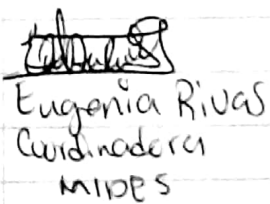 Eugenia Rivas
Cuordinadora
MIDES